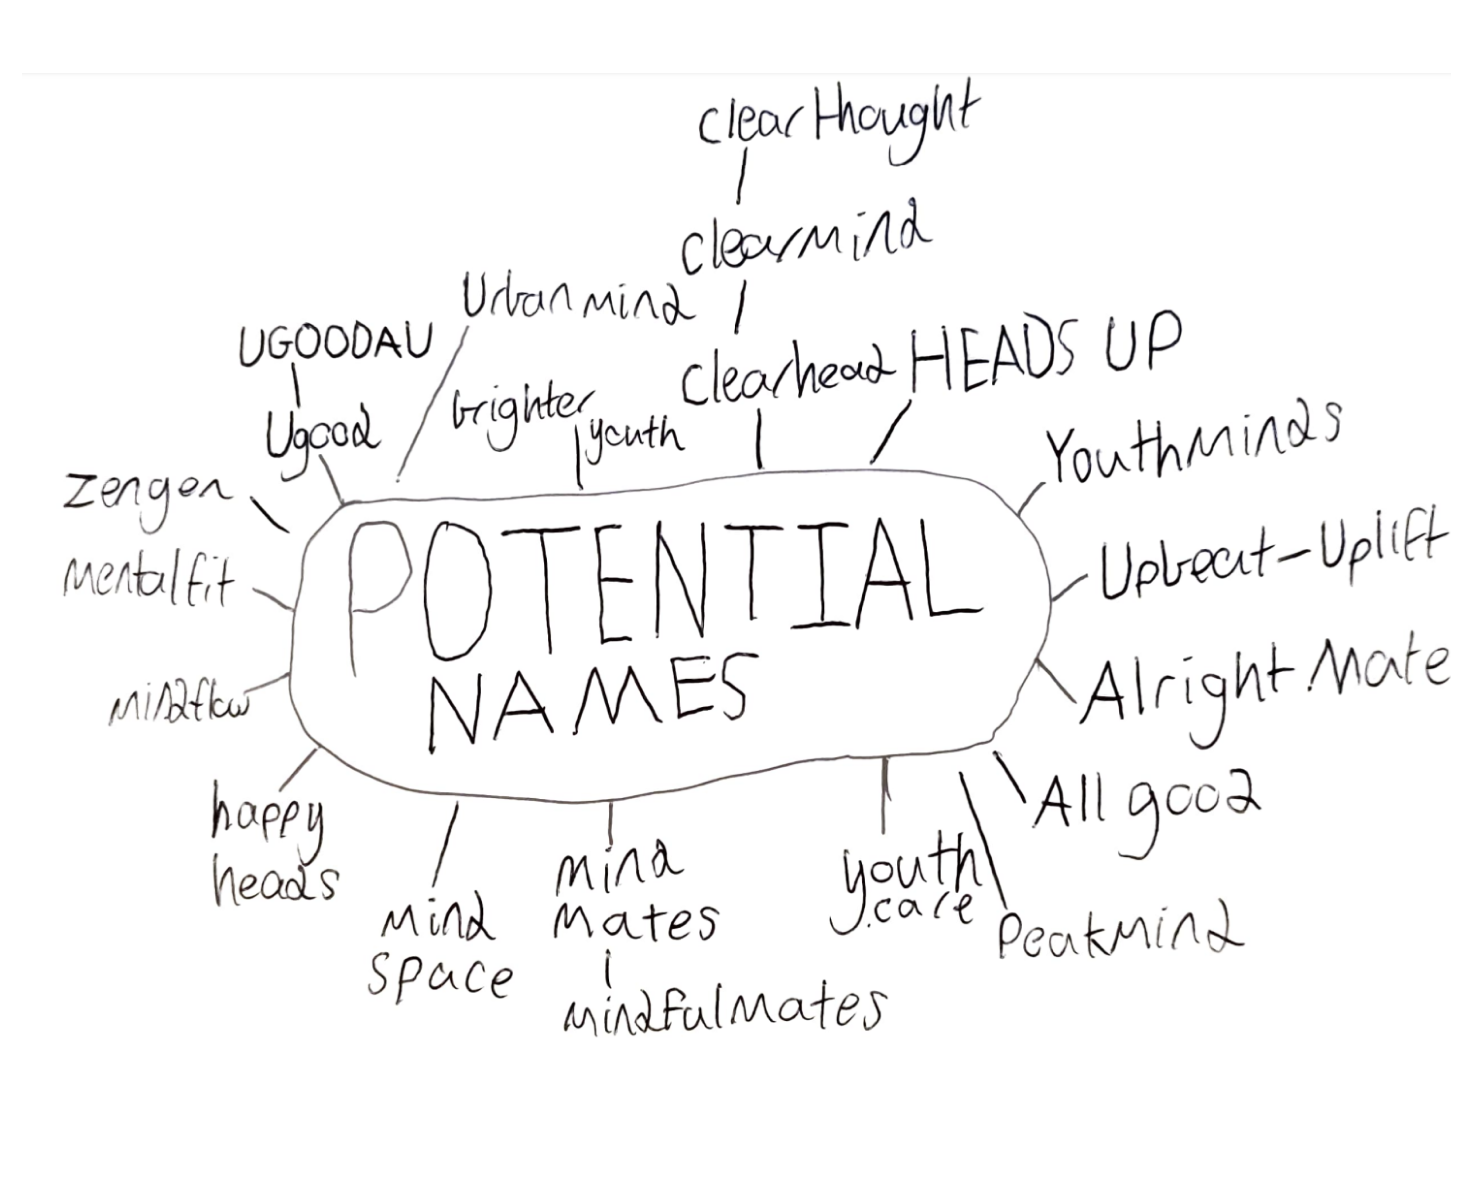 clearthought
clearmind
Urbanmind
UGOODAU
clearhead
HEADS UP
brighter
youth
Ugood
YouthMinds
zengen
Mentalfit
Upbeat-Uplift
POTENTIAL
NAMES
Alright Mate
mindflow
All good
happy
heads
mind
mates
youth
.care
mind
space
PeakMind
mindfulmates